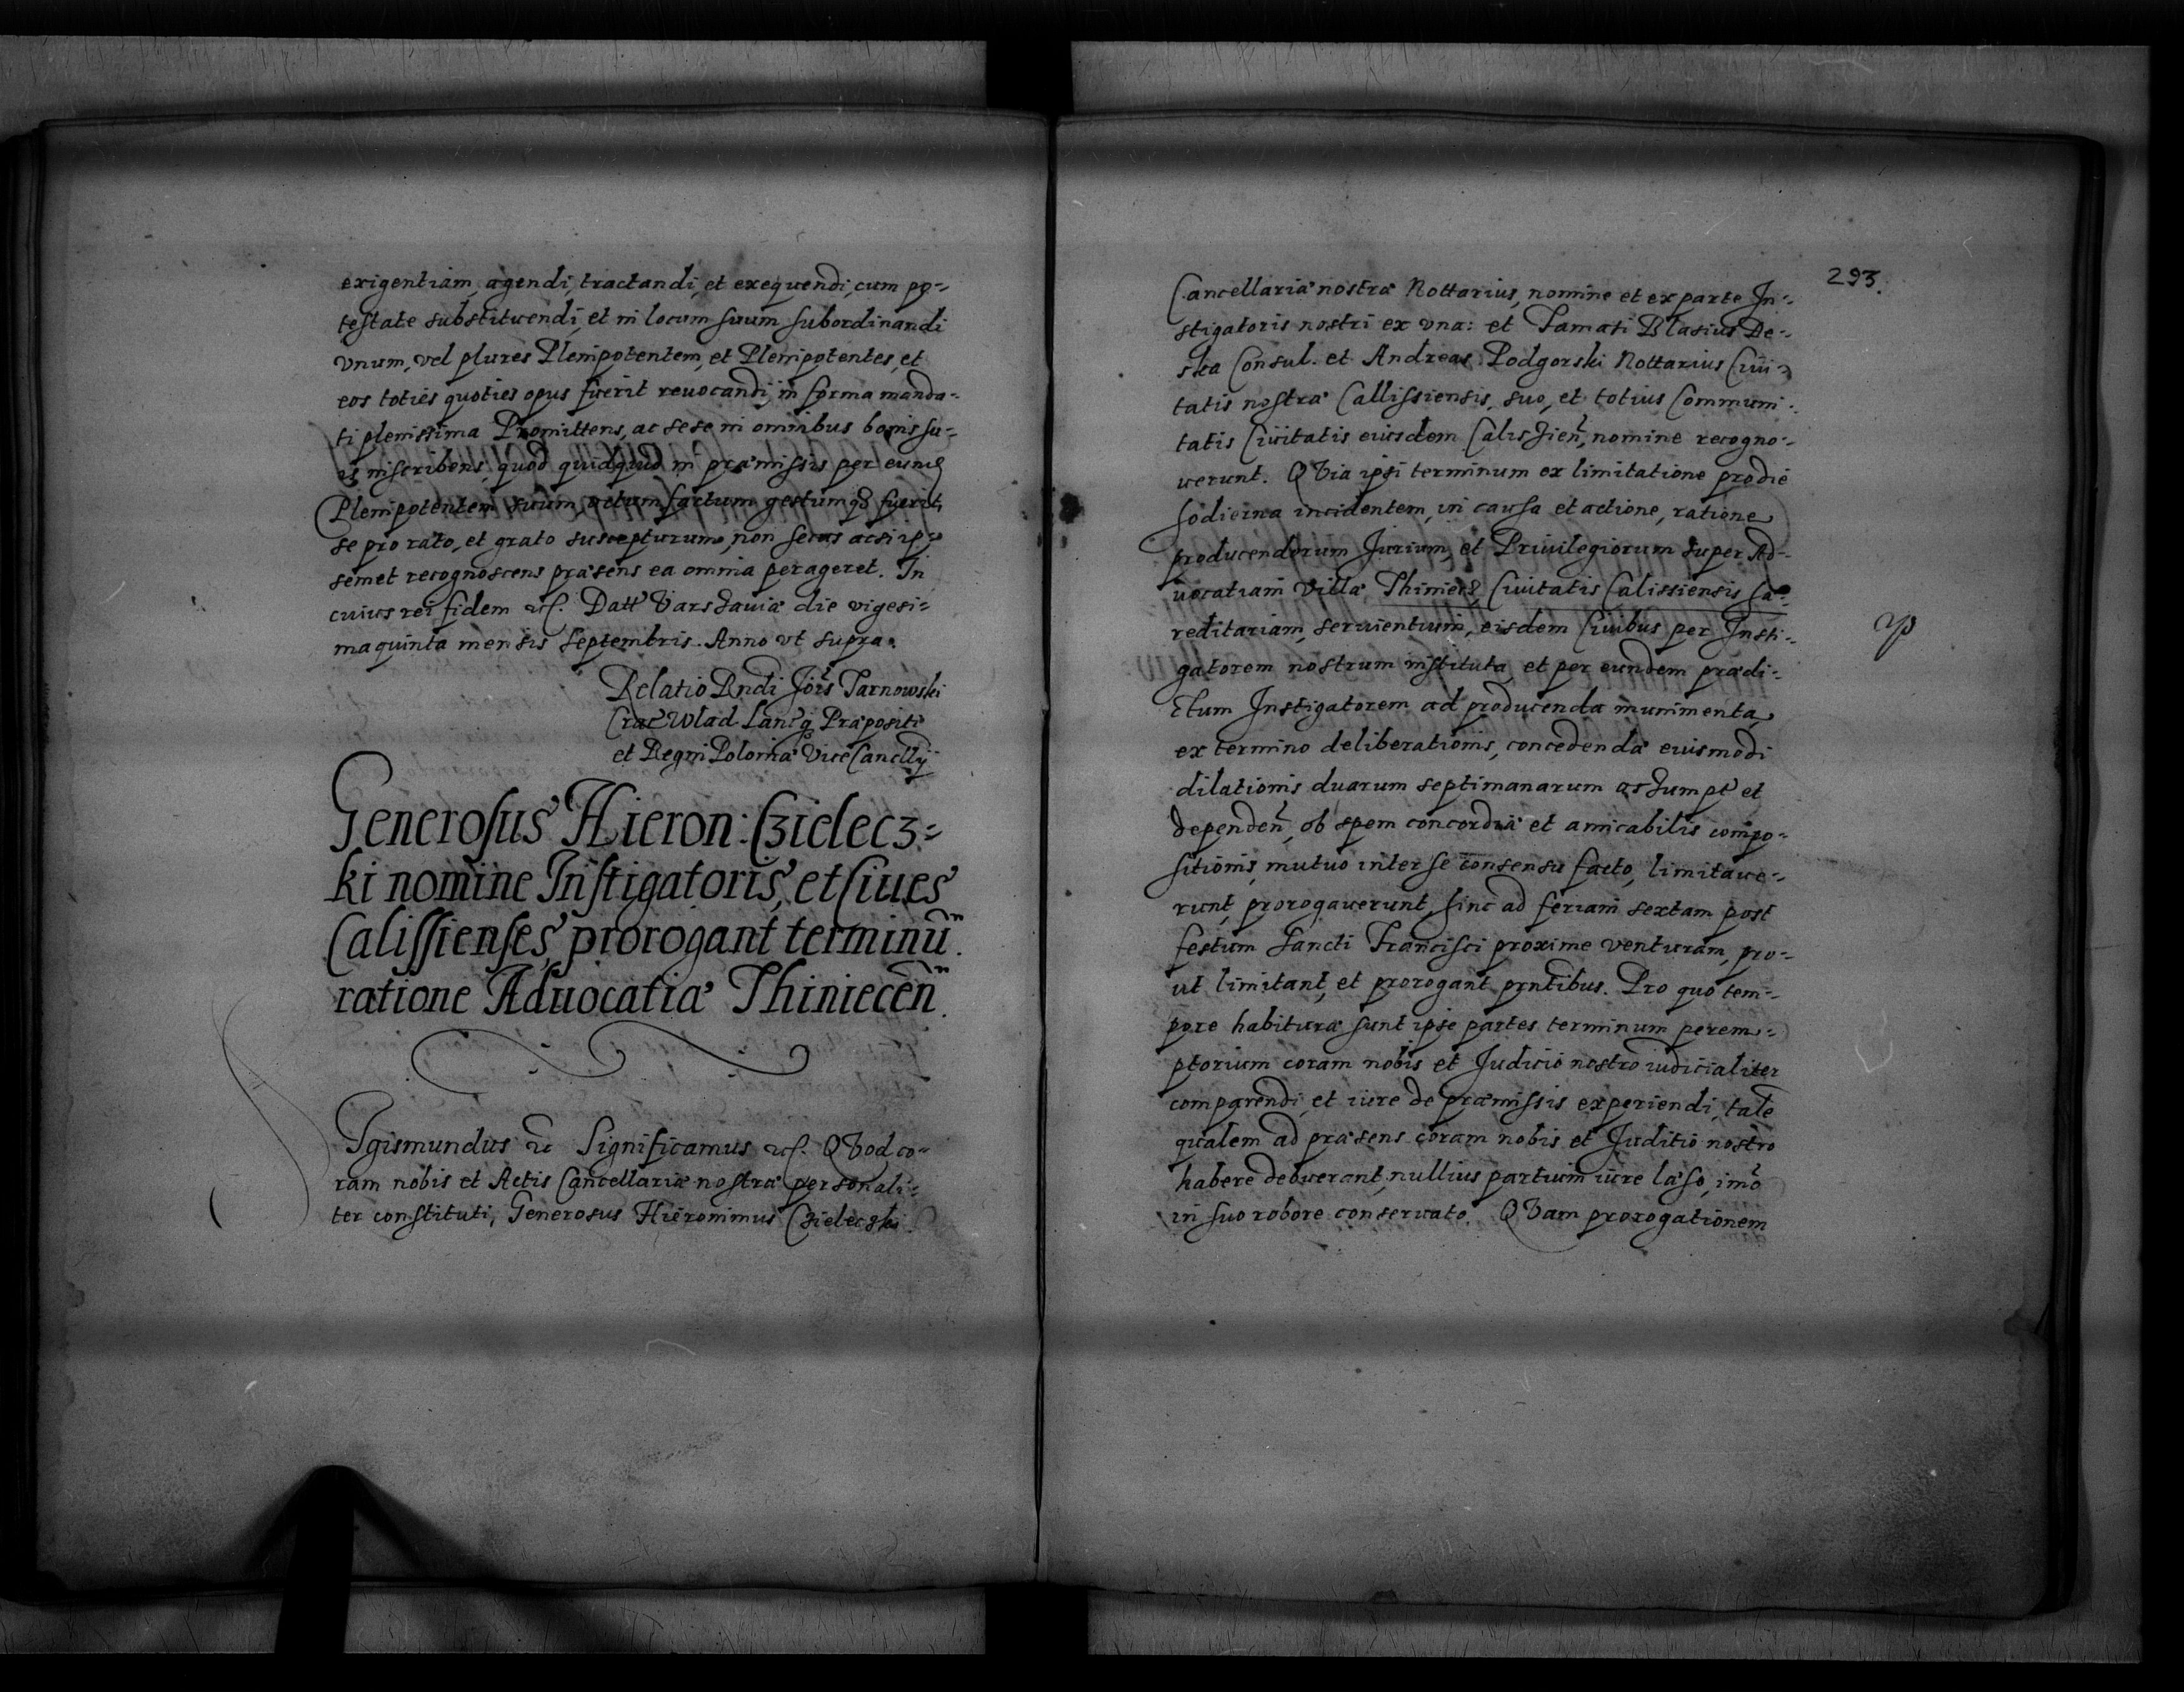 exigentiam, agendi, tractandi, et exequendi, cum po=
testate substituendi, et in locum suum subordinandi
vnum, vel plures Plenipotentem, et Plenipotentes, et
eos toties quoties opus fuerit reuocandi, in forma manda=
ti plenissima Promittens, ac sese in omnibus bonis su=
is inscribens, quod quidquid in præmissis per eum
Plenipotentem suum actum factum gestumq3 fuerit,
se pro rato, et grato suscepturum, non secus acsi ip=
semet recognoscens præsens ea omnia perageret. In
cuius rei fidem etc. Datt Varssauiæ die vigesi=
ma quinta mensis Septembris. Anno vt supra.
Relatio Rndi Jois Tarnowski
Crac Wlad Lanc q Præpositi
et Regni Poloniæ ViceCancllij
Generosus Hieron: Czielecz=
ki nomine Instigatoris, et Ciues
Calissienses, prorogant terminũ.
ratione Aduocatiæ Thiniecen̄.
Sgismundus etc Significamus etc. QVod co=
ram nobis et Actis Cancellariæ nostræ personali=
ter constituti, Generosus Hieronimus Czieleczki
293.
Cancellariæ nostræ Nottarius, nomine et ex parte In=
stigatoris nostri ex vna: et Famati Blasius De=
ska Consul. et Andreas Podgorski Nottarius Ciui=
tatis nostræ Callissiensis, suo, et totius Communi=
tatis Ciuitatis eiusdem Calissien̄, nomine recogno=
uerunt. QVia ipsi terminum ex limitatione prodie
hodierna incidentem, in causa et actione, ratione
producendorum Jurium, et Priuilegiorum super Ad=
uocatiam Villæ Thiniec, Ciuitatis Calissiensis hæ=
reditariam, seruientium, eisdem Ciuibus per Insti=
gatorem nostrum instituta, et per eundem prædi=
ctum Instigatorem ad producenda munimenta,
ex termino deliberationis, concedendæ euismodi
dilationis duarum septimanarum assumpt et
dependen̄, ob spem concordiæ et amicabilis compo=
sitionis, mutuo inter se consensu facto, limitaue=
runt, prorogauerunt, hinc ad feriam sextam post
festum Sancti Francisci proxime venturam, pro=
ut limitant, et prorogant prntibus. Pro quo tem=
pore habituræ sunt ipse partes terminum perem=
ptorium coram nobis et Judicio nostro iudicialiter
comparendi, et iure de præmissis experiendi, tale
qualem ad præsens coram nobis et Juditio nostro
habere debuerant, nullius partium iure læso, imo
in suo robore conseruato. QVam prorogationem